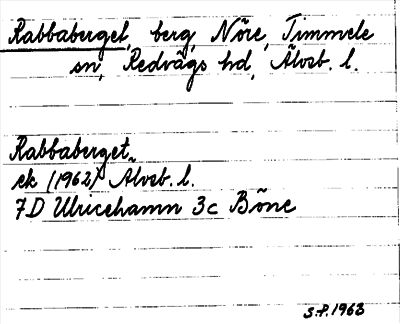 Rabbaberget, berg, Nöre, Timmele
sn, Redvägs hd, Älvsb. l.
Rabbaberget
ek (1962) Älvsb. l.
7D Ulricehamn 3c Böne
S.P. 1963